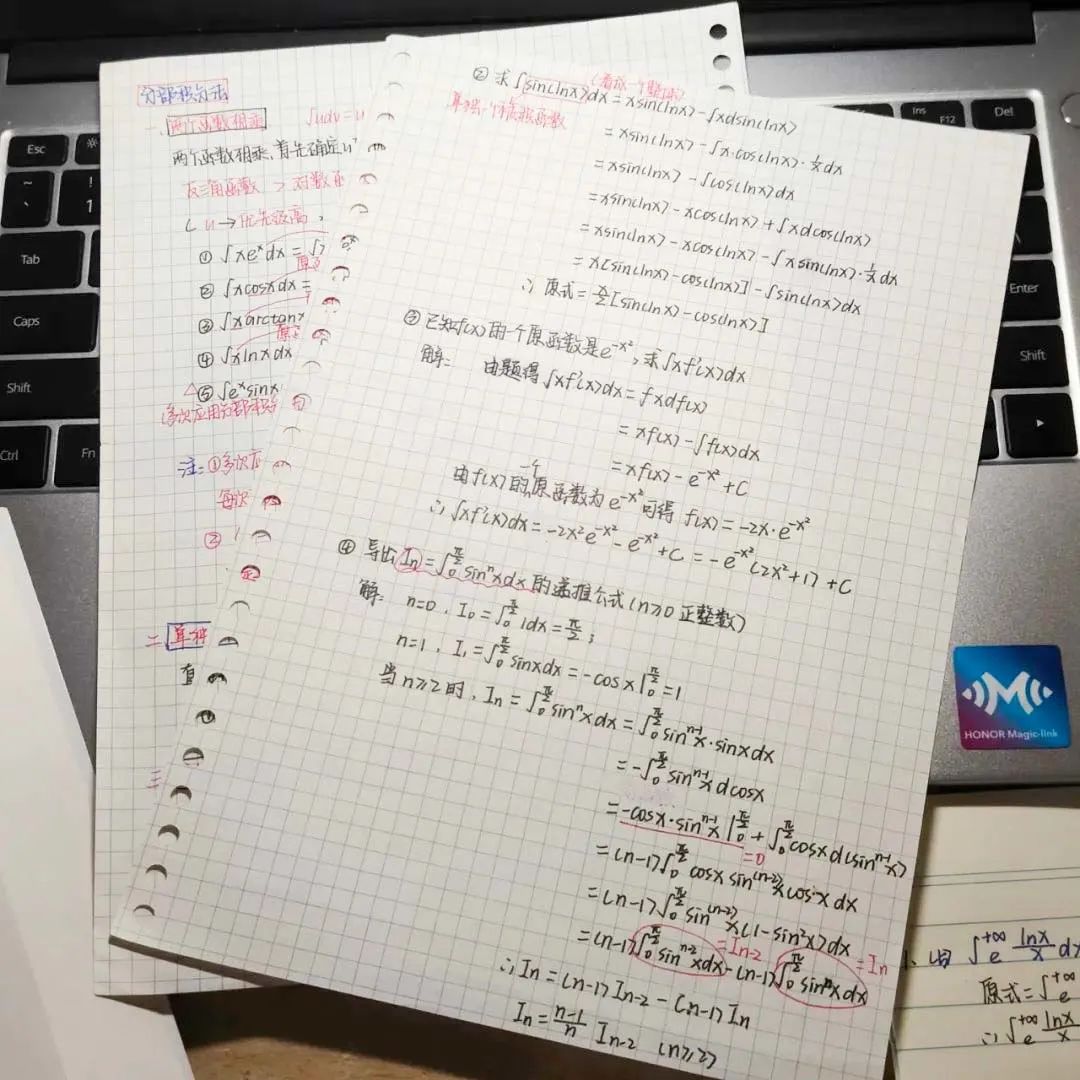 分部积分法
一、两个函数相乘 ∫udv=u
两个函数相乘，首先确定u
反三角函数 > 对数函
( u→优先级高，
① ∫xeˣdx = ∫
② ∫xcosxdx =
③ ∫xarctanx
④ ∫xlnxdx
△⑤ ∫eˣsinx
多次应用分部积分
注：①多次应
每次
②
二、单种
直
三
② 求∫sin(lnx)dx = xsin(lnx) - ∫xdsin(lnx)
(看成一个整体)
单独一个抽象函数
= xsin(lnx) - ∫x·cos(lnx)·1/x dx
= xsin(lnx) - ∫cos(lnx)dx
= xsin(lnx) - xcos(lnx) + ∫xdcos(lnx)
= xsin(lnx) - xcos(lnx) - ∫xsin(lnx)·1/x dx
= x[sin(lnx) - cos(lnx)] - ∫sin(lnx)dx
∴ 原式 = x/2[sin(lnx) - cos(lnx)]
③ 已知f(x)的一个原函数是e^(-x²), 求∫xf'(x)dx
解： 由题得∫xf'(x)dx = ∫xdf(x)
= xf(x) - ∫f(x)dx
= xf(x) - e^(-x²) + C
由f(x)的一个原函数为e^(-x²)可得 f(x) = -2x·e^(-x²)
∴ ∫xf'(x)dx = -2x²e^(-x²) - e^(-x²) + C = -e^(-x²)(2x²+1) + C
④ 导出In = ∫₀^(π/2) sinⁿxdx 的递推公式(n≥0 正整数)
解： n=0, I₀ = ∫₀^(π/2) 1dx = π/2;
n=1, I₁ = ∫₀^(π/2) sinxdx = -cosx|₀^(π/2) = 1
当n≥2时, In = ∫₀^(π/2) sinⁿxdx = ∫₀^(π/2) sin^(n-1)x·sinxdx
= -∫₀^(π/2) sin^(n-1)x dcosx
= -cosx·sin^(n-1)x|₀^(π/2) + ∫₀^(π/2) cosxd(sin^(n-1)x)
=0
= (n-1)∫₀^(π/2) cosx sin^(n-2)x cosx dx
= (n-1)∫₀^(π/2) sin^(n-2)x(1-sin²x)dx
=In-2 =In
= (n-1)∫₀^(π/2) sin^(n-2)xdx - (n-1)∫₀^(π/2) sinⁿxdx
∴ In = (n-1)In-2 - (n-1)In
In = (n-1)/n In-2 (n≥2)
∫ₑ^(+∞) lnx/x d
原式 = ∫ₑ^(+∞)
∴ ∫ₑ^(+∞) lnx/x
Esc
~
!
1
Tab
Caps
Shift
Ctrl
Fn
Ins
F12
Del
Enter
Shift
HONOR Magic-link